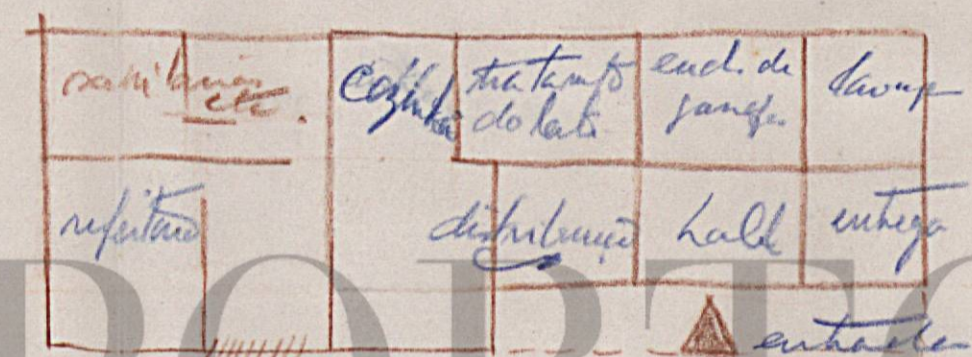 sanitários
etc.
Cozinha
tratamto
do leite
ench. de
garraf.
lavage
refeitório
distribuição
hall
entrega
entrada
PORTO